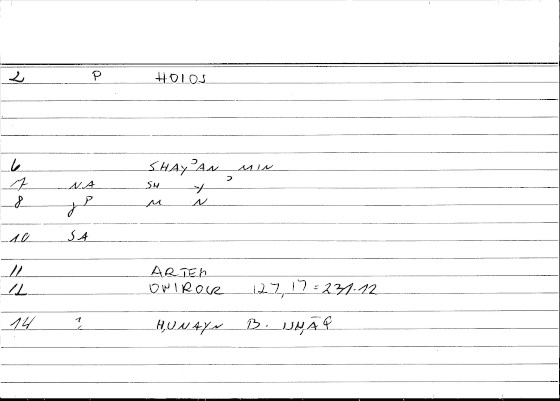 2 P HOIOS
6 SHAYʾAN MIN
7 NA SH Y ʾ
8 γP M N
10 SA
11 ARTEM
12 ONIROCR 127, 17 = 231.12
14 : ḤUNAYN B. ISḤĀQ